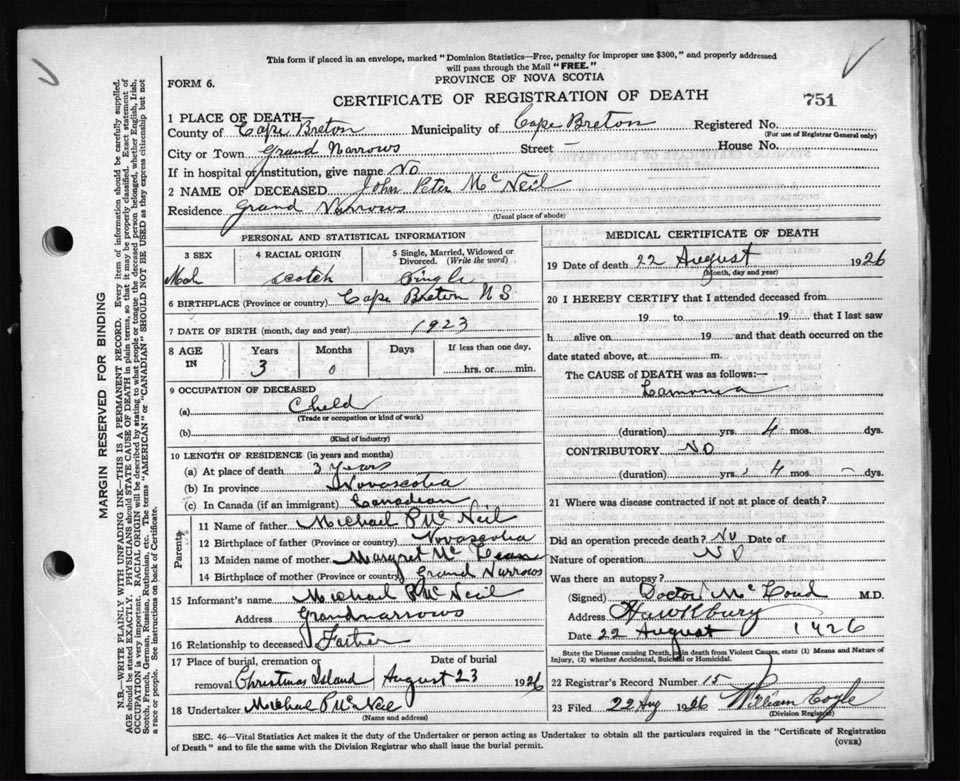 This form if placed in an envelope, marked "Dominion Statistics—Free, penalty for improper use $300," and properly addressed
will pass through the Mail "FREE."
FORM 6.
PROVINCE OF NOVA SCOTIA
CERTIFICATE OF REGISTRATION OF DEATH
751
1 PLACE OF DEATH—
County of Cape Breton Municipality of Cape Breton Registered No.
(For use of Registrar General only)
City or Town Grand Narrows Street — House No.
If in hospital or institution, give name No
2 NAME OF DECEASED John Peter McNeil
Residence Grand Narrows
(Usual place of abode)
PERSONAL AND STATISTICAL INFORMATION
3 SEX 4 RACIAL ORIGIN 5 Single, Married, Widowed or Divorced. (Write the word)
Scotch Single
6 BIRTHPLACE (Province or country) Cape Breton N S
7 DATE OF BIRTH (month, day and year) 1923
8 AGE IN Years Months Days If less than one day,
3 0 hrs. or min.
9 OCCUPATION OF DECEASED
(a) Child
(Trade or occupation or kind of work)
(b)
(Kind of industry)
10 LENGTH OF RESIDENCE (in years and months)
(a) At place of death 3 years
(b) In province Novascotia
(c) In Canada (if an immigrant) Canadian
Parents
11 Name of father Michael P McNeil
12 Birthplace of father (Province or country) Novascotia
13 Maiden name of mother Margret Mc Lean
14 Birthplace of mother (Province or country) Grand Narrows
15 Informant's name Michael P McNeil
Address Grandnarrows
16 Relationship to deceased Father
17 Place of burial, cremation or removal Christmas Island Date of burial August 23 1926
18 Undertaker Michael P McNeil
(Name and address)
MEDICAL CERTIFICATE OF DEATH
19 Date of death 22 August 1926
(Month, day and year)
20 I HEREBY CERTIFY that I attended deceased from
19 to 19 that I last saw
h alive on 19 and that death occurred on the
date stated above, at m.
The CAUSE of DEATH was as follows:—
(duration) yrs. 4 mos. dys.
CONTRIBUTORY NO
(duration) yrs. 4 mos. — dys.
21 Where was disease contracted if not at place of death?
Did an operation precede death? No Date of
Nature of operation NO
Was there an autopsy?
(Signed) Doctor M.D.
Address Hawksbury
Date 22 August 1926
State the Disease causing Death, or in death from Violent Causes, state (1) Means and Nature of
Injury, (2) whether Accidental, Suicidal or Homicidal.
22 Registrar's Record Number 15
23 Filed 22 Aug 1926 William Coyle
(Division Registrar)
SEC. 46—Vital Statistics Act makes it the duty of the Undertaker or person acting as Undertaker to obtain all the particulars required in the "Certificate of Registration
of Death" and to file the same with the Division Registrar who shall issue the burial permit.
(OVER)
MARGIN RESERVED FOR BINDING
N.B.—WRITE PLAINLY WITH UNFADING INK—THIS IS A PERMANENT RECORD. Every item of information should be carefully supplied.
AGE should be stated EXACTLY. PHYSICIANS should STATE CAUSE OF DEATH in plain terms, so that it may be properly classified. Exact statement of
OCCUPATION is very important. RACIAL ORIGIN will be described by stating to what people or tongue the deceased person belonged, whether English, Irish,
Scotch, French, German, Russian, Ruthenian, etc. The terms "AMERICAN" or "CANADIAN" SHOULD NOT BE USED as they express citizenship but not
a race or people. See instructions on back of Certificate.